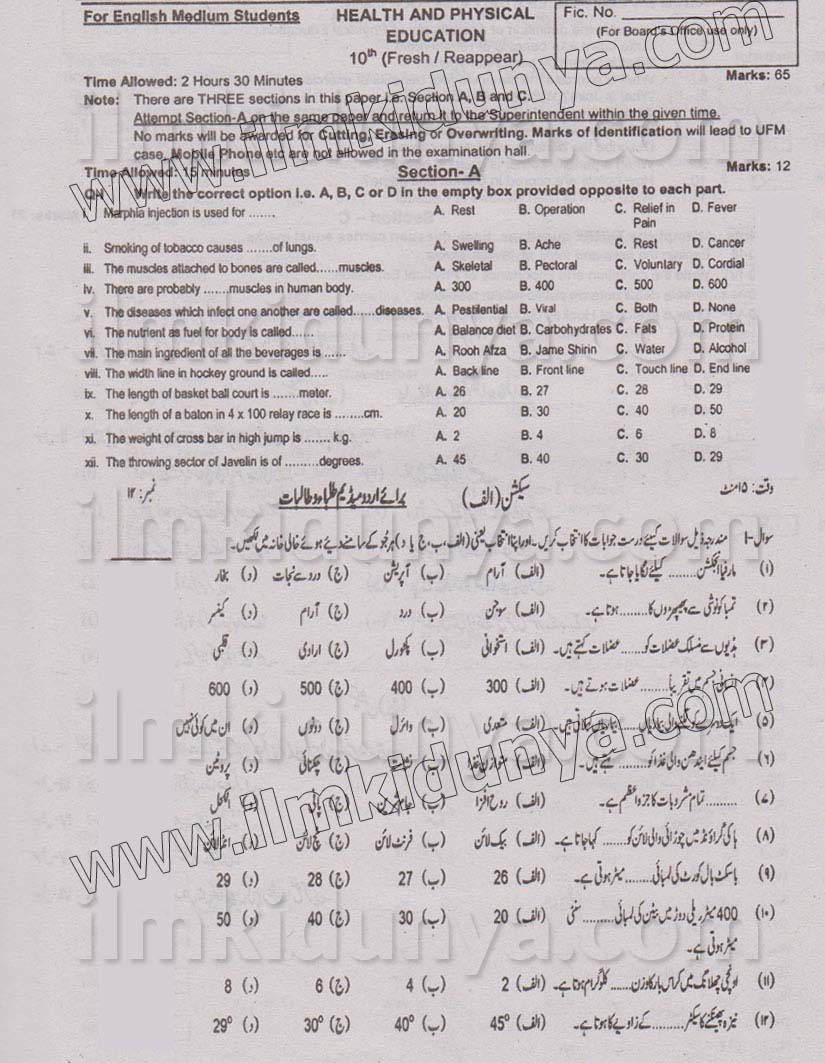 For English Medium Students
HEALTH AND PHYSICAL
EDUCATION
10th (Fresh / Reappear)
Fic. No.
(For Board's Office use only)
Time Allowed: 2 Hours 30 Minutes
Marks: 65
Note: There are THREE sections in this paper i.e. Section A, B and C.
Attempt Section-A on the same paper and return it to the Superintendent within the given time.
No marks will be awarded for Cutting, Erasing or Overwriting. Marks of Identification will lead to UFM
case. Mobile Phone etc are not allowed in the examination hall.
Time Allowed: 15 minutes
Section- A
Marks: 12
Write the correct option i.e. A, B, C or D in the empty box provided opposite to each part.
Marphia injection is used for ....... A. Rest B. Operation C. Relief in D. Fever
Pain
ii. Smoking of tobacco causes .......of lungs. A. Swelling B. Ache C. Rest D. Cancer
iii. The muscles attached to bones are called......muscles. A. Skeletal B. Pectoral C. Voluntary D. Cordial
iv. There are probably .......muscles in human body. A. 300 B. 400 C. 500 D. 600
v. The diseases which infect one another are called......diseases. A. Pestilential B. Viral C. Both D. None
vi. The nutrient as fuel for body is called...... A. Balance diet B. Carbohydrates C. Fats D. Protein
vii. The main ingredient of all the beverages is ...... A. Rooh Afza B. Jame Shirin C. Water D. Alcohol
viii. The width line in hockey ground is called..... A. Back line B. Front line C. Touch line D. End line
ix. The length of basket ball court is .......meter. A. 26 B. 27 C. 28 D. 29
x. The length of a baton in 4 x 100 relay race is ........cm. A. 20 B. 30 C. 40 D. 50
xi. The weight of cross bar in high jump is ....... k.g. A. 2 B. 4 C. 6 D. 8
xii. The throwing sector of Javelin is of .........degrees. A. 45 B. 40 C. 30 D. 29
وقت: ۱۵ منٹ
سیکشن (الف)
برائے اردو میڈیم طلباء و طالبات
نمبر: ۱۲
سوال-۱ مندرجہ ذیل سوالات کیلئے درست جوابات کا انتخاب کریں۔ اور اپنا انتخاب یعنی (الف، ب، ج یا د) ہر جُز کے سامنے دیئے ہوئے خالی خانہ میں لکھیں۔
(۱) مارفیا انجکشن ........ کیلئے لگایا جاتا ہے۔ (الف) آرام (ب) آپریشن (ج) درد سے نجات (د) بخار
(۲) تمباکو نوشی سے پھیپھڑوں کا ........ ہوتا ہے۔ (الف) سوجن (ب) درد (ج) آرام (د) کینسر
(۳) ہڈیوں سے منسلک عضلات کو ........ عضلات کہتے ہیں۔ (الف) استخوانی (ب) پکٹورل (ج) ارادی (د) قلبی
جسم میں تقریباً ........ عضلات ہوتے ہیں۔ (الف) 300 (ب) 400 (ج) 500 (د) 600
(۵) ایک دوسرے کو (الف) متعدی (ب) وائرل (ج) دونوں (د) ان میں کوئی نہیں
(۶) جسم کیلئے ایندھن والی غذا کو ........ کہتے ہیں۔ (الف) متوازن غذا (ب) نشاستے (ج) چکنائی (د) پروٹین
(۷) ........ تمام مشروبات کا جزو اعظم ہے۔ (الف) روح افزا (ب) جام شیریں (ج) پانی (د) الکحل
(۸) ہاکی گراؤنڈ میں چوڑائی والی لائن کو ........ کہا جاتا ہے۔ (الف) بیک لائن (ب) فرنٹ لائن (ج) ٹچ لائن (د) اینڈ لائن
(۹) باسکٹ بال کورٹ کی لمبائی ........ میٹر ہوتی ہے۔ (الف) 26 (ب) 27 (ج) 28 (د) 29
(۱۰) 400 میٹر ریلی دوڑ میں بیٹن کی لمبائی ........ سنٹی (الف) 20 (ب) 30 (ج) 40 (د) 50
میٹر ہوتی ہے۔
(۱۱) اونچی چھلانگ میں کراس بار کا وزن ........ کلوگرام ہوتا ہے۔ (الف) 2 (ب) 4 (ج) 6 (د) 8
(۱۲) نیزہ پھینکنے کا سیکٹر ........ کے زاویے کا ہوتا ہے۔ (الف) 45° (ب) 40° (ج) 30° (د) 29°
www.ilmkidunya.com
ilmkidunya.com
ilmkidunya.com
www.ilmkidunya.com
ilmkidunya.com
ilmkidunya.com